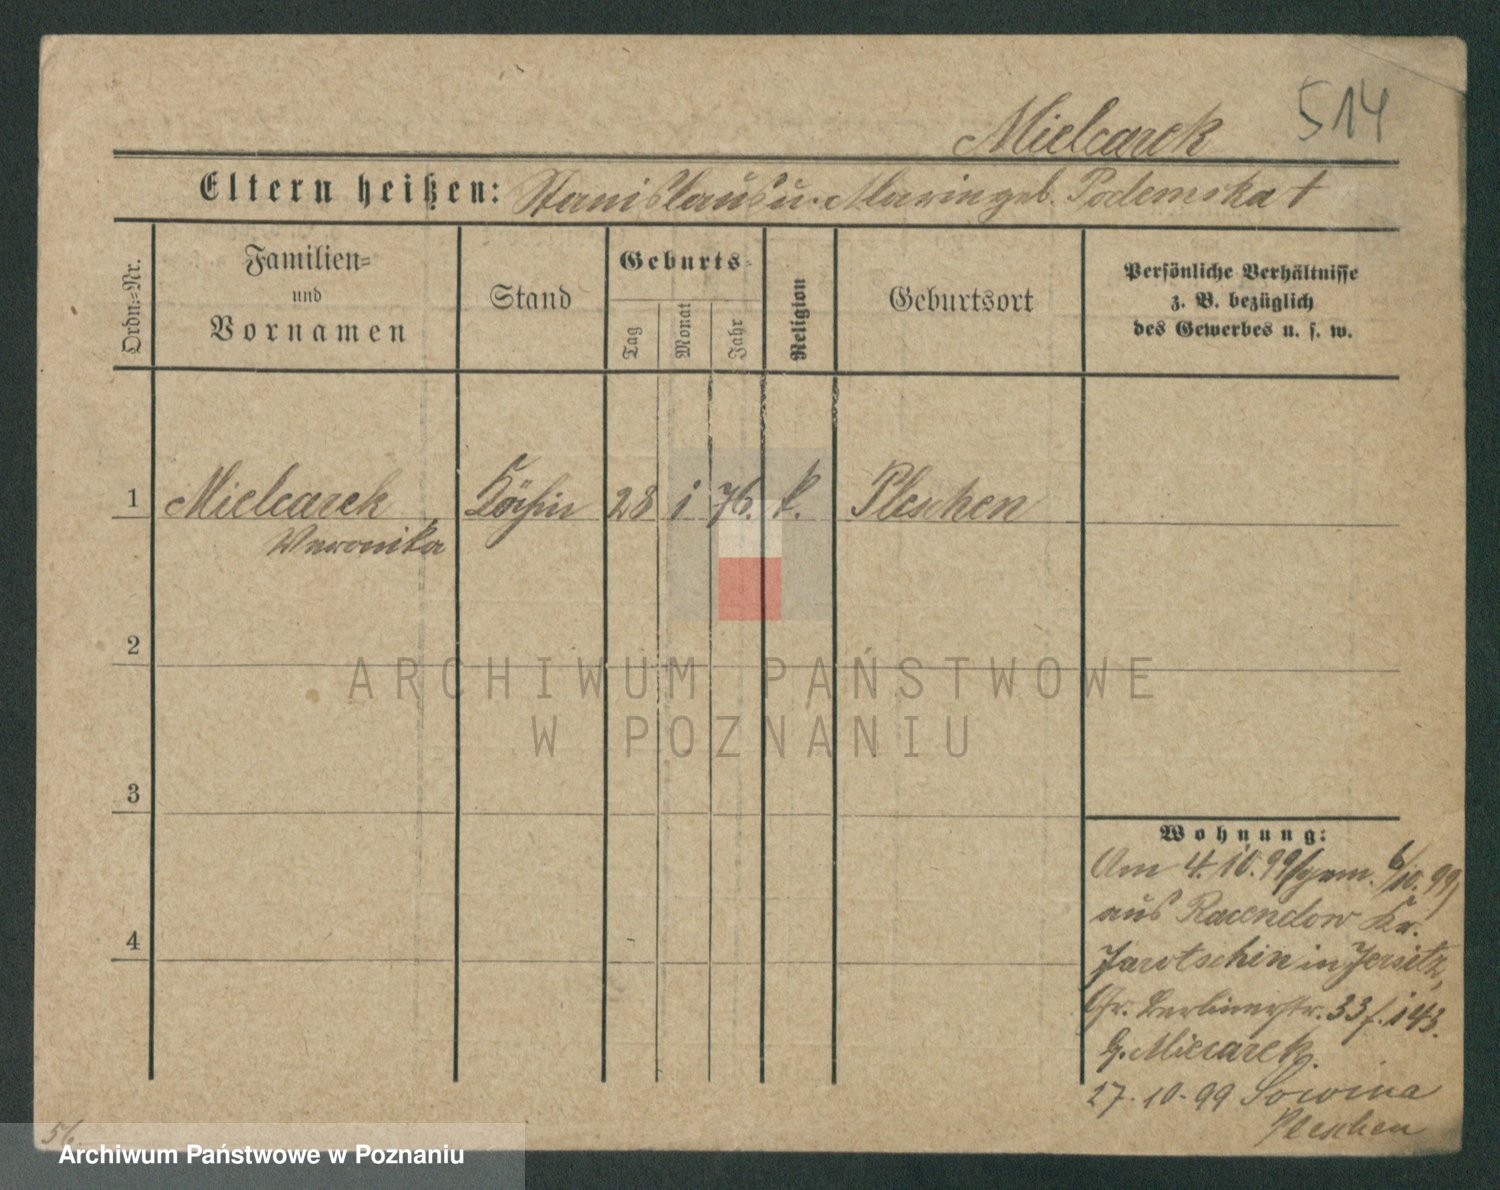 Mielcarek 514
Eltern heißen: Stanislaus u. Marin geb. Podemska †
Ordn.=Nr.
Familien=
und
Vornamen
Stand
Geburts=
Tag
Monat
Jahr
Religion
Geburtsort
Persönliche Verhältnisse
z. B. bezüglich
des Gewerbes u. s. w.
1 Mielcarek Köchin 28 1 76. k. Pleschen
Weronika
2
3
4
Wohnung:
Am 4.10.99/gem. 6/10.99
aus Racendow Kr.
Jarotschin in Jersitz,
Gr. Berlinerstr. 33 f. 143.
Miecarek.
27.10.99 Sowina
Pleschen
56
ARCHIWUM PAŃSTWOWE
W POZNANIU
Archiwum Państwowe w Poznaniu